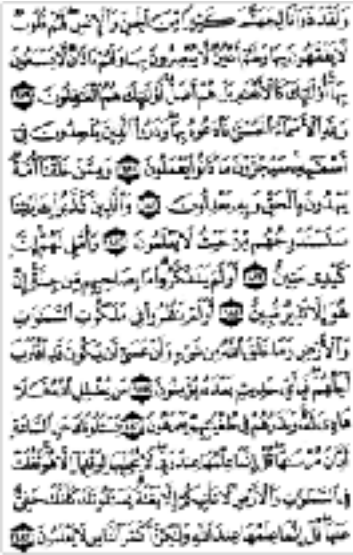 وَلَقَدْ ذَرَأْنَا لِجَهَنَّمَ كَثِيرًا مِّنَ ٱلْجِنِّ وَٱلْإِنسِ لَهُمْ قُلُوبٌ
لَّا يَفْقَهُونَ بِهَا وَلَهُمْ أَعْيُنٌ لَّا يُبْصِرُونَ بِهَا وَلَهُمْ ءَاذَانٌ لَّا يَسْمَعُونَ
بِهَآ أُو۟لَٰٓئِكَ كَٱلْأَنْعَٰمِ بَلْ هُمْ أَضَلُّ أُو۟لَٰٓئِكَ هُمُ ٱلْغَٰفِلُونَ
وَلِلَّهِ ٱلْأَسْمَآءُ ٱلْحُسْنَىٰ فَٱدْعُوهُ بِهَا وَذَرُوا۟ ٱلَّذِينَ يُلْحِدُونَ فِىٓ
أَسْمَٰٓئِهِۦ سَيُجْزَوْنَ مَا كَانُوا۟ يَعْمَلُونَ وَمِمَّنْ خَلَقْنَآ أُمَّةٌ
يَهْدُونَ بِٱلْحَقِّ وَبِهِۦ يَعْدِلُونَ وَٱلَّذِينَ كَذَّبُوا۟ بِـَٔايَٰتِنَا
سَنَسْتَدْرِجُهُم مِّنْ حَيْثُ لَا يَعْلَمُونَ وَأُمْلِى لَهُمْ إِنَّ
كَيْدِى مَتِينٌ أَوَلَمْ يَتَفَكَّرُوا۟ مَا بِصَاحِبِهِم مِّن جِنَّةٍ إِنْ
هُوَ إِلَّا نَذِيرٌ مُّبِينٌ أَوَلَمْ يَنظُرُوا۟ فِى مَلَكُوتِ ٱلسَّمَٰوَٰتِ
وَٱلْأَرْضِ وَمَا خَلَقَ ٱللَّهُ مِن شَىْءٍ وَأَنْ عَسَىٰٓ أَن يَكُونَ قَدِ ٱقْتَرَبَ
أَجَلُهُمْ فَبِأَىِّ حَدِيثٍۭ بَعْدَهُۥ يُؤْمِنُونَ مَن يُضْلِلِ ٱللَّهُ فَلَا
هَادِىَ لَهُۥ وَيَذَرُهُمْ فِى طُغْيَٰنِهِمْ يَعْمَهُونَ يَسْـَٔلُونَكَ عَنِ ٱلسَّاعَةِ
أَيَّانَ مُرْسَىٰهَا قُلْ إِنَّمَا عِلْمُهَا عِندَ رَبِّى لَا يُجَلِّيهَا لِوَقْتِهَآ إِلَّا هُوَ ثَقُلَتْ
فِى ٱلسَّمَٰوَٰتِ وَٱلْأَرْضِ لَا تَأْتِيكُمْ إِلَّا بَغْتَةً يَسْـَٔلُونَكَ كَأَنَّكَ حَفِىٌّ
عَنْهَا قُلْ إِنَّمَا عِلْمُهَا عِندَ ٱللَّهِ وَلَٰكِنَّ أَكْثَرَ ٱلنَّاسِ لَا يَعْلَمُونَ